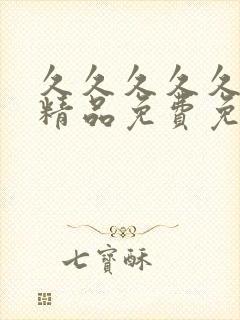 久久久久久
精品免费免
七寶酥